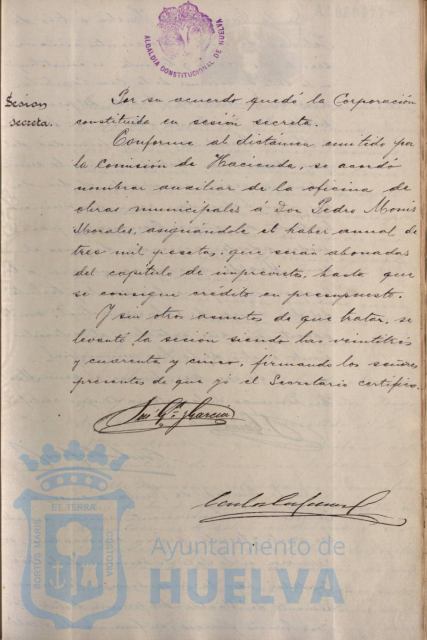 ALCALDIA CONSTITUCIONAL DE HUELVA
Sesion
secreta.
Por su acuerdo quedó la Corporación
constituida en sesión secreta.
Conforme al dictámen emitido por
la Comisión de Hacienda, se acordó
nombrar auxiliar de la oficina de
obras municipales á Don Pedro Monis
Morales, asignándole el haber anual de
tres mil pesetas, que serán abonadas
del capítulo de imprevistos, hasta que
se consigne crédito en presupuesto.
Y sin otros asuntos de que tratar, se
levantó la sesión siendo las veintitres
y cuarenta y cinco, firmando los señores
presentes de que yó el Secretario certifico.
García
PORTUS MARIS
ET TERRÆ
CUSTODIA
Ayuntamiento de
HUELVA